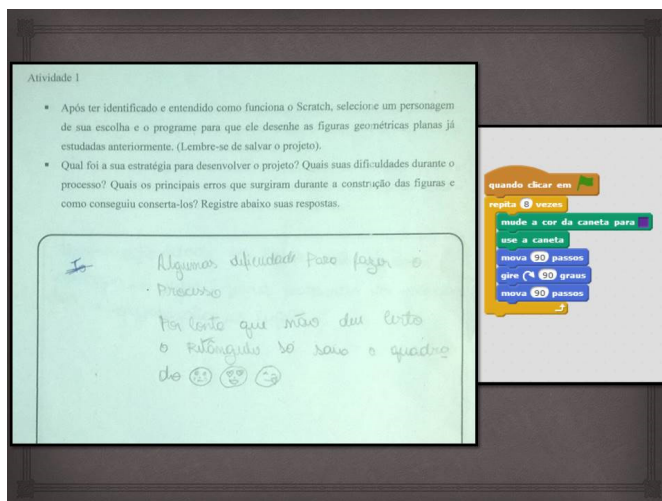 Atividade 1
Após ter identificado e entendido como funciona o Scratch, selecione um personagem
de sua escolha e o programe para que ele desenhe as figuras geométricas planas já
estudadas anteriormente. (Lembre-se de salvar o projeto).
Qual foi a sua estratégia para desenvolver o projeto? Quais suas dificuldades durante o
processo? Quais os principais erros que surgiram durante a construção das figuras e
como conseguiu conserta-los? Registre abaixo suas respostas.
Algumas dificudade para fazer o
processo
Por conta que não deu certo
o retângulo só saio o quadra
do
quando clicar em
repita 8 vezes
mude a cor da caneta para
use a caneta
mova 90 passos
gire 90 graus
mova 90 passos